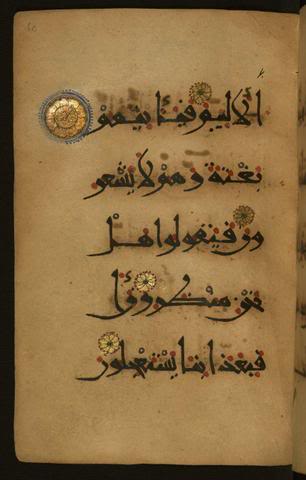 الأليم فيأتيهم
بغتة وهم لا يشعر
ون فيقولوا هل
نحن منظرون أ
فبعذابنا يستعجلون